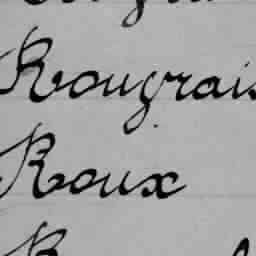 Rougrais
Roux